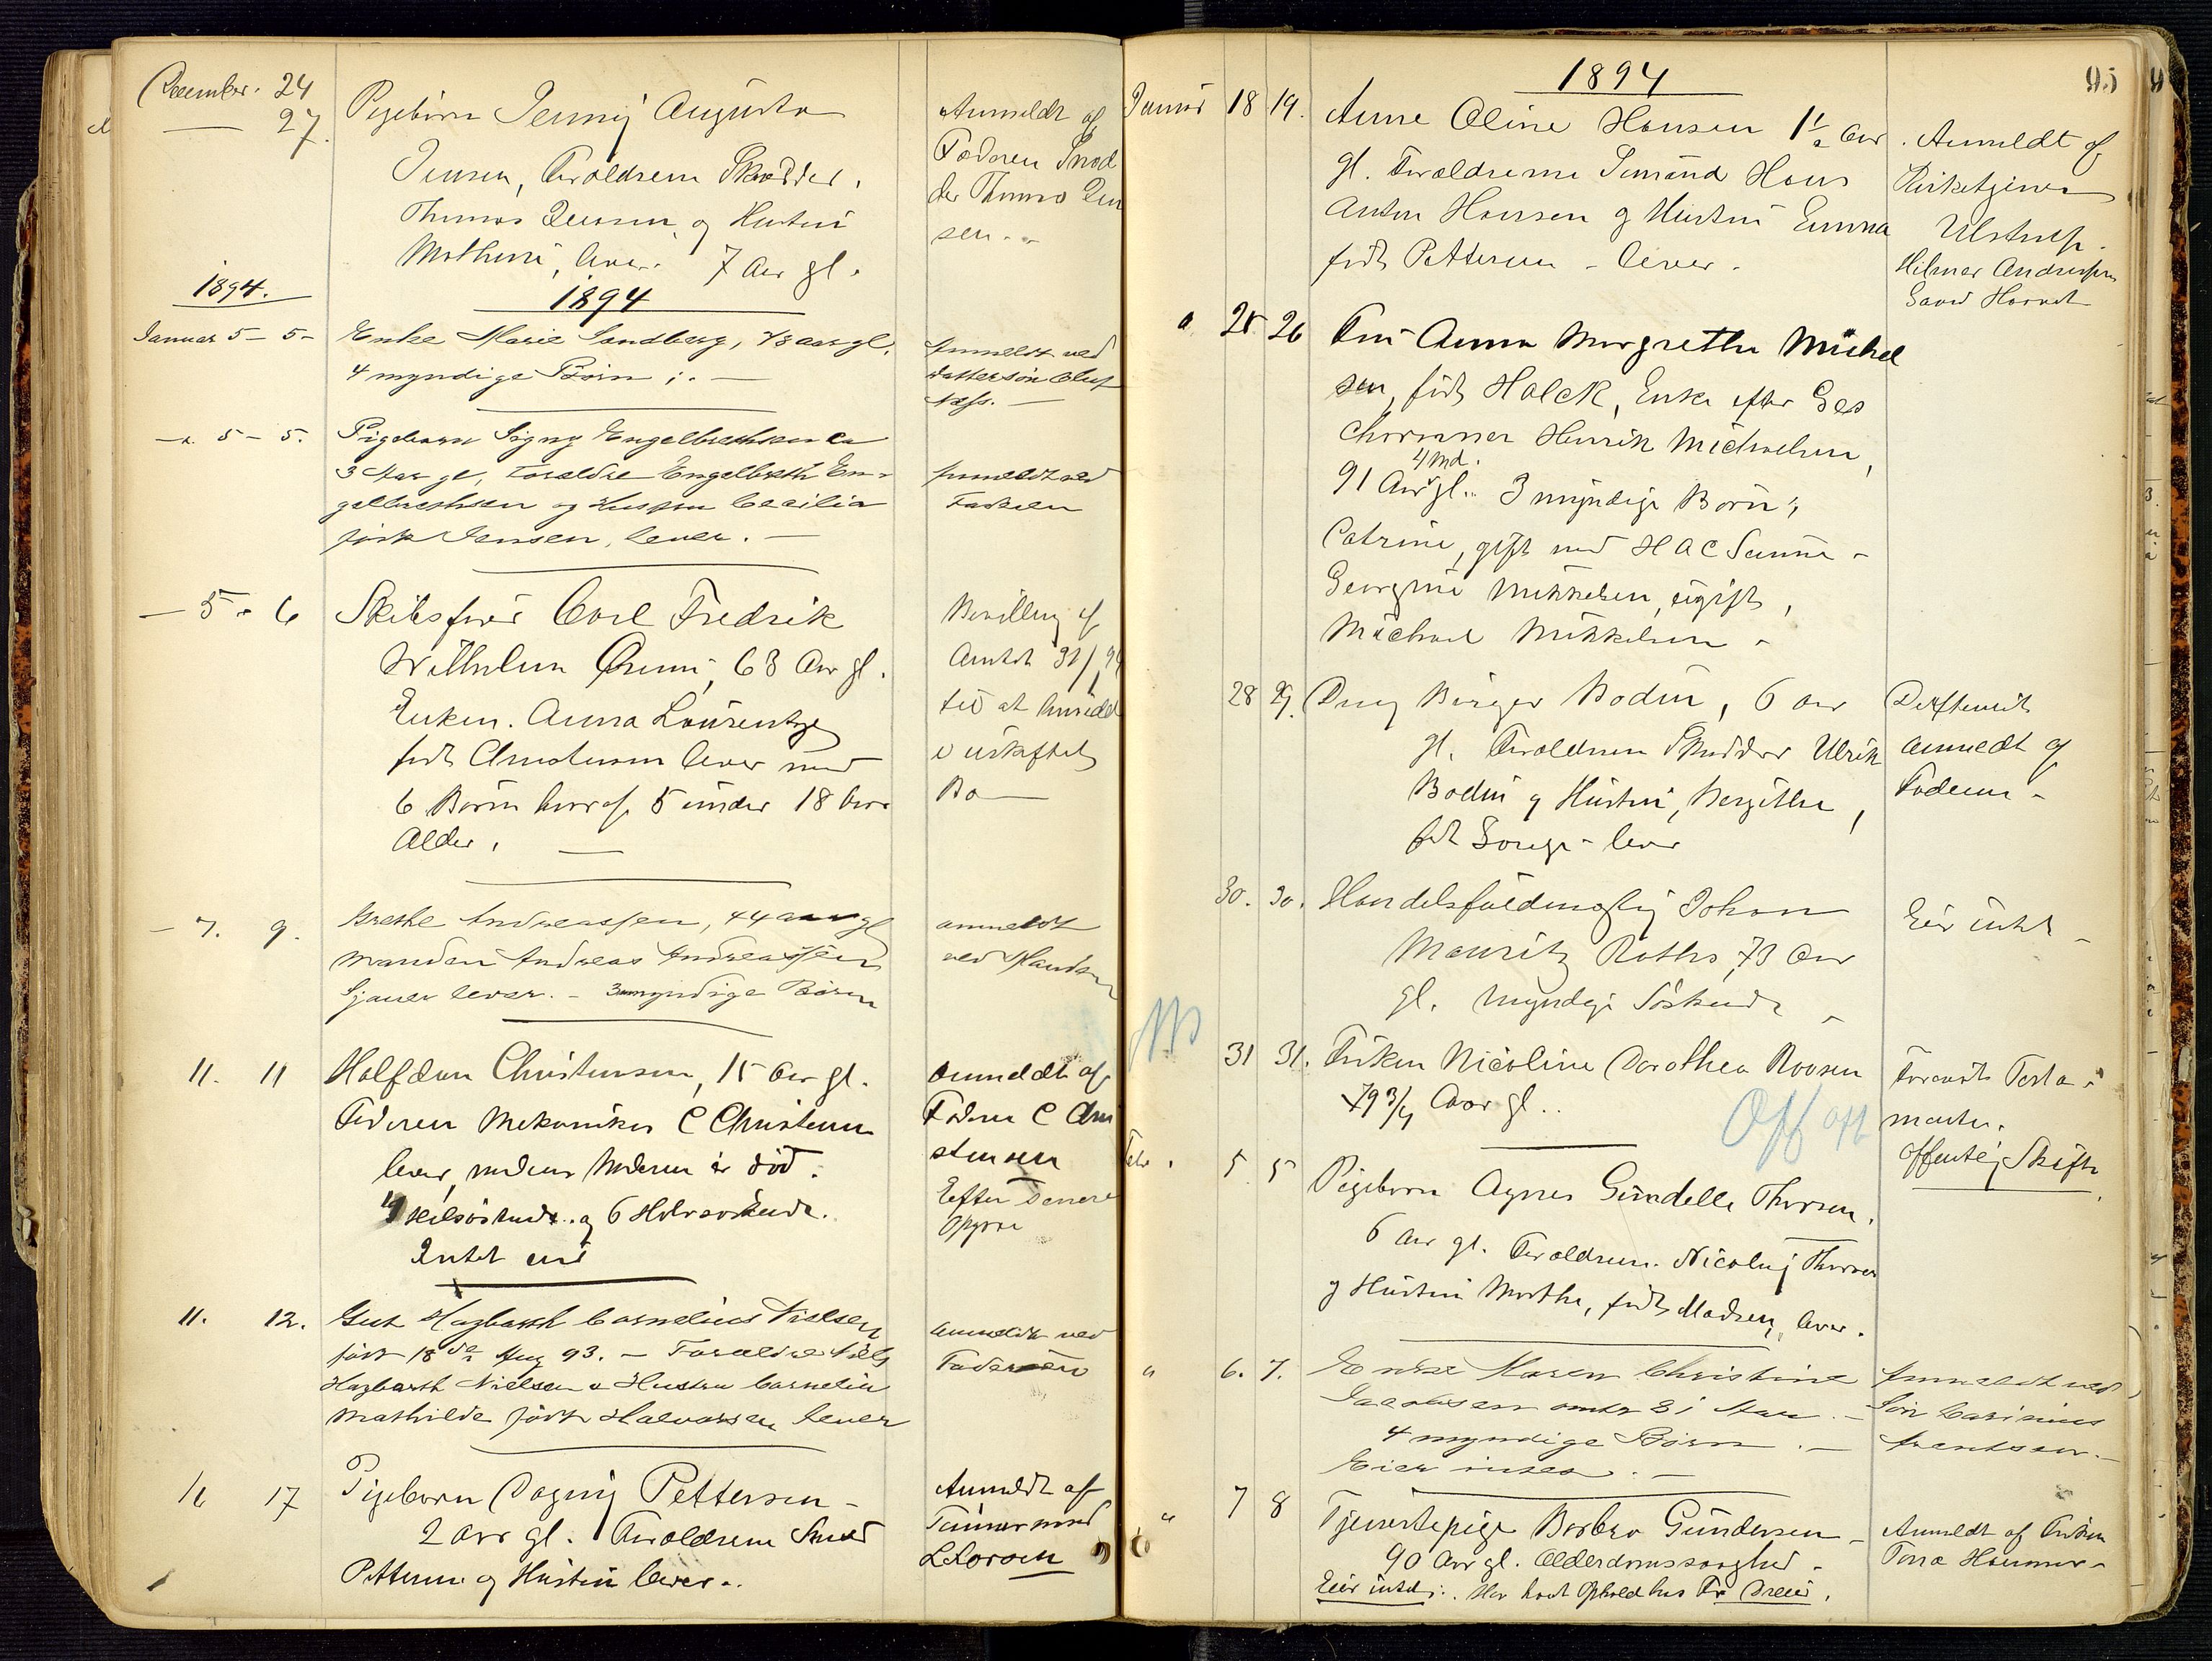 December. 24
— 27.
Pigebarn Jenny Augusta
Jensen, Forældrene Skrædder
Thomas Jensen, og Hustru
Mathina, lever. 7 Aar gl.
Anmeldt af
Faderen Skræd
der Thomas Jen
sen.
1894.
1894
Januar 5 – 5 –
Enke Marie Sandberg, 73 aar gl.
4 myndige Børn ;. —
Anmeldt ved
Dattersön Oluf
Næss. —
—„ 5 – 5.
Pigebarn Signy Engelbrethsen ca
3 Aar gl, Forældre Engelbreth En-
gelbrethsen og Hustru Cecilia
født Jensen, lever. —
Anmeldt ved
Faderen
— 5 „ 6
Skibsfører Carl Fredrik
Wilhelm 63 Aar gl.
Enken. Anna Lourentze
født Christensen lever med
6 Børn hvoraf 5 under 18 Aars
Alder, —
Bevilling af
Amtet 31/1 94
til at hensidde
i uskiftet
Bo —
– 7. 9.
Grethe Andreassen, 44 aar gl
Manden Andreas Andreassen
Sjauer lever. – 3 umyndige Børn
anmeldt
ved Manden
11. 11
Halfdan Christensen, 15 Aar gl.
Faderen Mekaniker C Christensen
lever, medens Moderen er død.
Helsøskende og 6 Halvsøskende.
Intet eie
Anmeldt af
Faderen C Chri
stensen
Efter senere
Opgave
11. 12.
Gut Hagbarth Cornelius Nielsen
født 18de Aug 93. – Forældre Nils
Hagbarth Nielsen & Hustru Cornelia
Mathilde født Halvorsen lever
Anmeldt ved
Faderen
16 17
Pigebarn Dagny Pettersen –
2 Aar gl. Forældrene Smed
Pettersen og Hustru lever..
Anmeldt af
Tømmermand
L Larsen
95
1894
Januar 18 19.
Anne Oline Hansen 1½ Aar
gl. Forældrene Sømand Hans
Anton Hansen og Hustru Emma
født Pettersen – lever.
Anmeldt af
Kirketjener
Ulstrup.
Hilmar Andersen
" 25 26
Fru Anna Margrethe Michel
sen, født Holck, Enke efter Ges
chworner Henrik Michelsen,
4 Md.
91 Aar gl.. 3 myndige Børn ;
Catrine, gift med H A C Sumne –
Georgine Mikkelsen, ugift,
Michael Mikkelsen –
28 29.
Dreng Birger Bodin, 6 aar
gl. Forældrene Skrædder Ulrik
Bodin og Hustru, Bergithe,
født – lever
Anmeldt af
Faderen –
30. 30.
Handelsfuldmægtig Johan
Mauritz Raths, 73 Aar
gl. Myndige Søskende –
Eier intet –
31 31.
Frøken Nicoline Dorothea Roosen
79 3/4 Aar gl..
Off
Forevist Testa-
mente.
Offentlig Skifte
Febr. 5 5
Pigebarn Agnes Gundelle Thorsen.
6 Aar gl. Forældrene Nicolay Thorsen
og Hustru Marthe, født Madsen, lever.
" 6. 7.
Enke Maren Christine
Jacobsen omtr 81 Aar. –
4 myndige Børn. —
Eier intet. —
Anmeldt ved
Søn Carinius
Arentsen. —
" 7 8
Tjenestepige Barbro Gundersen –
90 Aar gl. Alderdomssvaghed –
Eier intet ;. Har havt Ophold hos Fr Dreier.
Anmeldt af Frøken
Hammer –